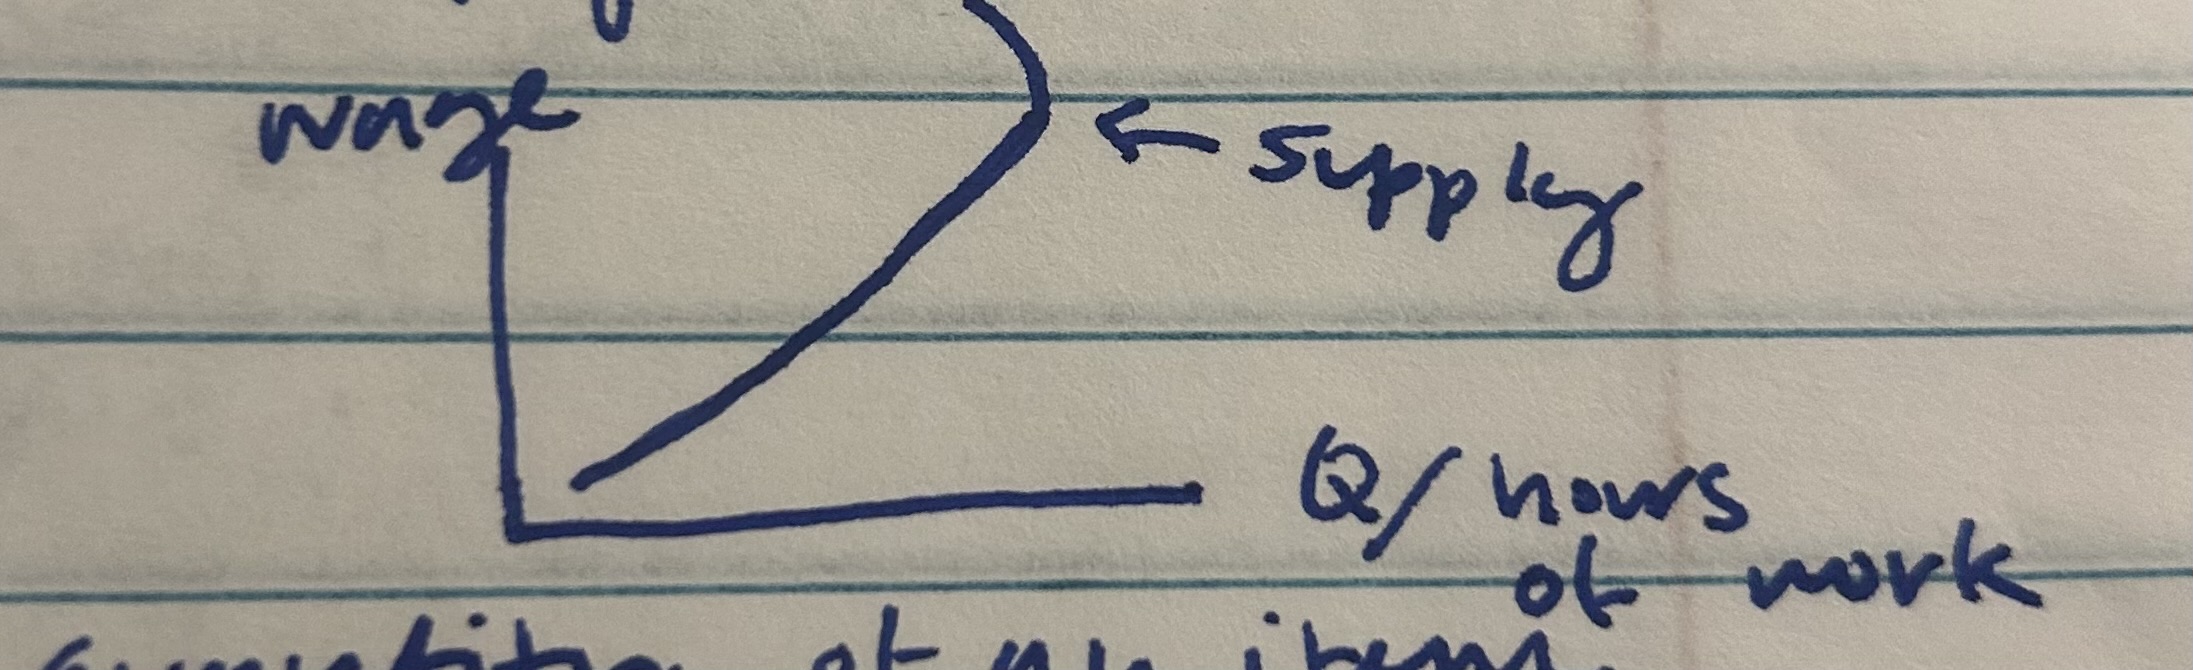 wage
← supply
Q/hours
of work
of an item.